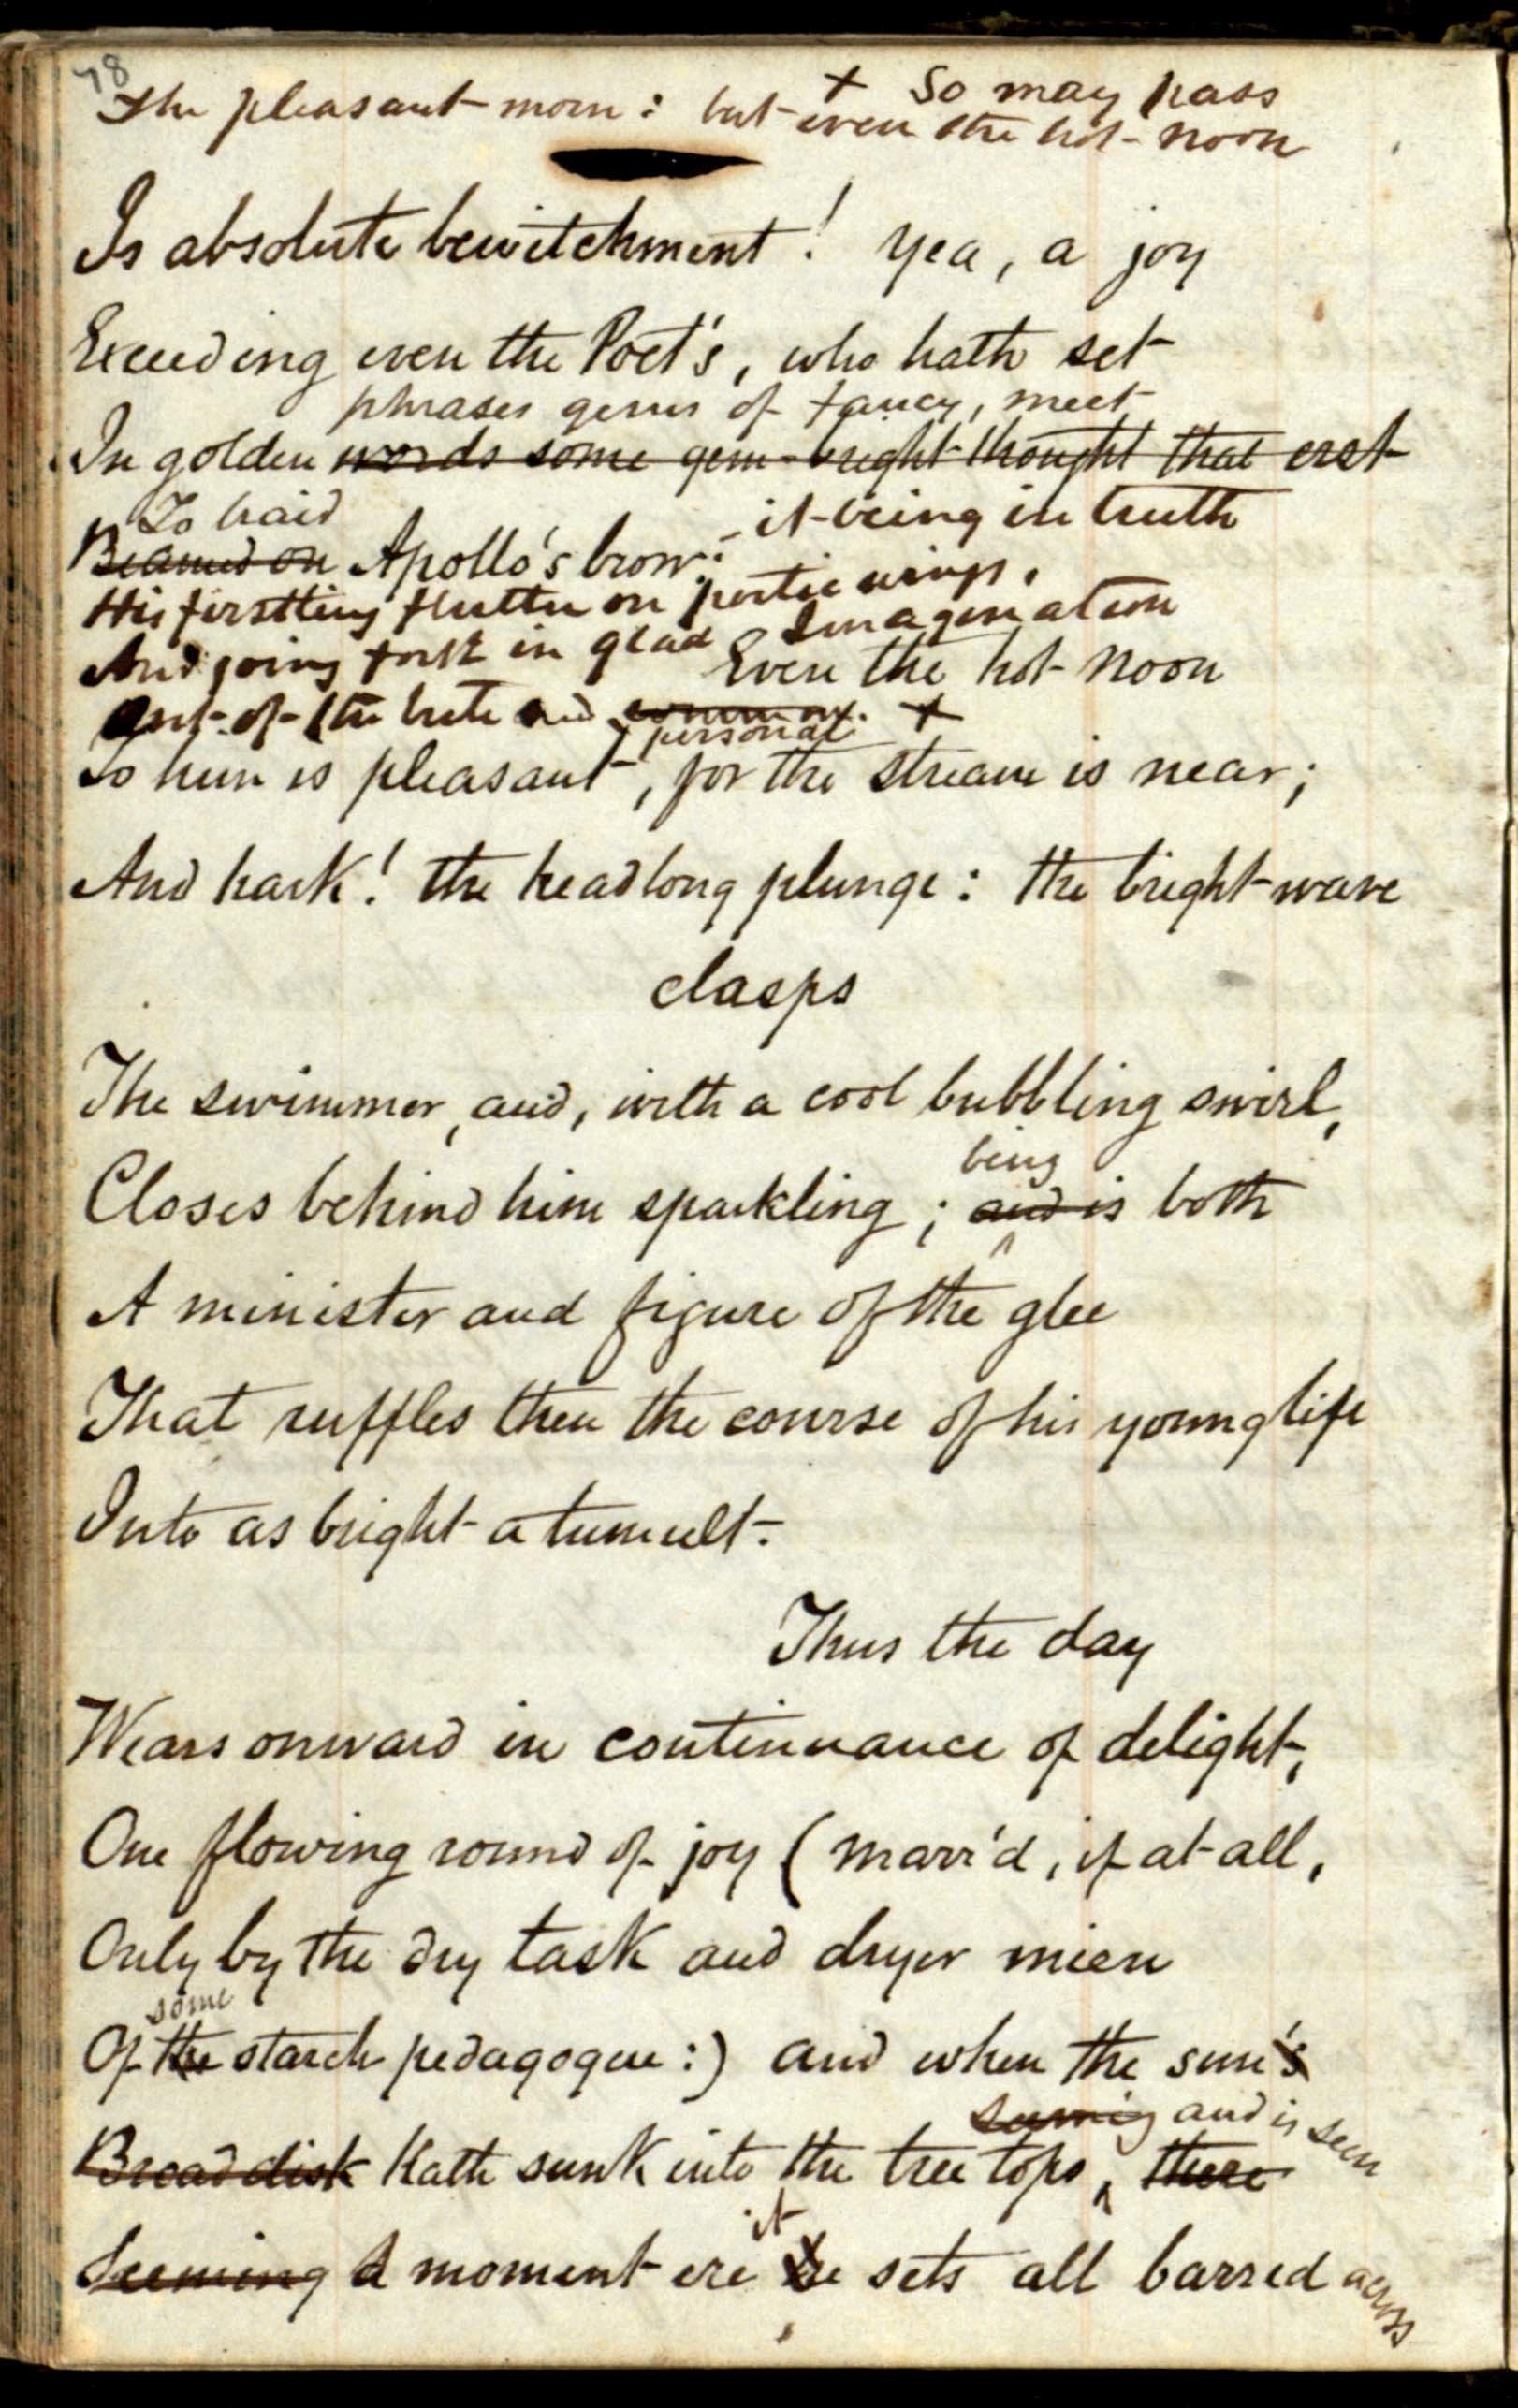 78
+ So may pass
The pleasant morn: but even the hot noon
Is absolute bewitchment! Yea, a joy
Exceeding even the Poet's, who hath set
phrases gems of fancy, meet
In golden words some gem-bright thought that erst
To braid
Beamed on Apollo's brow: - it being in truth
His firstling flutter on poetic wings,
And going forth in glad Imagination
Even the hot noon
Out-of-the brute and common. +
personal.
To him is pleasant, for the stream is near;
And hark! the headlong plunge: the bright wave
clasps
The swimmer, and, with a cool bubbling swirl,
being
Closes behind him sparkling; and is both
A minister and figure of the glee
That ruffles then the course of his young life
Into as bright a tumult.
Thus the day
Wears onward in continuance of delight,
One flowing round of joy (marr'd, if at all,
Only by the dry task and dryer mien
some
Of the starch pedagogue:) and when the sun's
seeming and is seen
Broad disk Hath sunk into the tree tops, there
it
Seeming A moment ere he sets all barred across